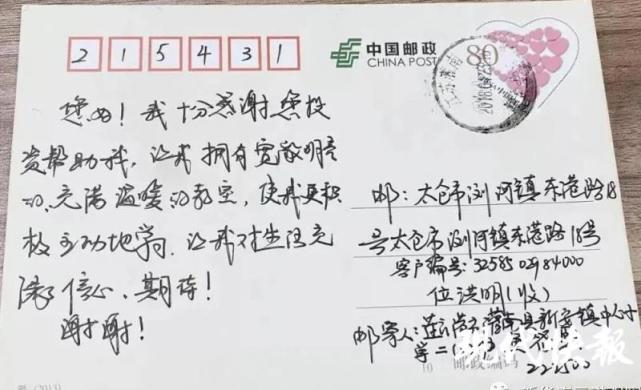 215431
中国邮政
CHINA POST
80
江苏灌南
2018.
您好！我十分感谢您投
资帮助我，让我拥有宽敞明亮
的、充满温暖的教室，使我更积
极主动地学习，让我对生活充
满了信心、期待！
谢谢！
邮：太仓市浏河镇东港路18
号太仓市浏河镇东港路18号
客户编号：32585 02984000
位洪明（收）
邮寄人：连云港市灌南县新安镇中心小
学二（
邮政编码
222500
现代快报
(2013)